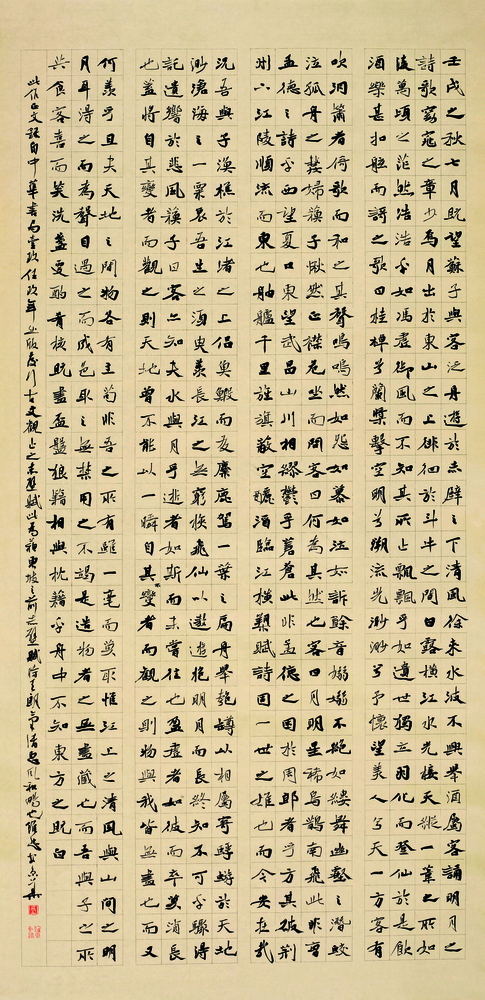 壬戌之秋七月既望蘇子與客泛舟遊於赤壁之下清風徐來水波不興舉酒屬客誦明月之
詩歌窈窕之章少焉月出於東山之上徘徊於斗牛之間白露橫江水光接天縱一葦之所如
凌萬頃之茫然浩浩乎如馮虛御風而不知其所止飄飄乎如遺世獨立羽化而登仙於是飲
酒樂甚扣舷而歌之歌曰桂棹兮蘭槳擊空明兮溯流光渺渺兮予懷望美人兮天一方客有
吹洞簫者倚歌而和之其聲嗚嗚然如怨如慕如泣如訴餘音嫋嫋不絕如縷舞幽壑之潛蛟
泣孤舟之嫠婦蘇子愀然正襟危坐而問客曰何為其然也客曰月明星稀烏鵲南飛此非曹
孟德之詩乎西望夏口東望武昌山川相繆鬱乎蒼蒼此非孟德之困於周郎者乎方其破荊
州下江陵順流而東也舳艫千里旌旗蔽空釃酒臨江橫槊賦詩固一世之雄也而今安在哉
況吾與子漁樵於江渚之上侶魚蝦而友麋鹿駕一葉之扁舟舉匏樽以相屬寄蜉蝣於天地
渺滄海之一粟哀吾生之須臾羨長江之無窮挾飛仙以遨遊抱明月而長終知不可乎驟得
託遺響於悲風蘇子曰客亦知夫水與月乎逝者如斯而未嘗往也盈虛者如彼而卒莫消長
也蓋將自其變者而觀之則天地曾不能以一瞬自其不變者而觀之則物與我皆無盡也而又
何羨乎且夫天地之間物各有主苟非吾之所有雖一毫而莫取惟江上之清風與山間之明
月耳得之而為聲目遇之而成色取之無禁用之不竭是造物者之無盡藏也而吾與子之所
共食客喜而笑洗盞更酌肴核既盡盃盤狼籍相與枕藉乎舟中不知東方之既白
此作正文録自中華書局出版發行古文觀止之赤壁賦此為蘇東坡之前赤壁賦惠風和暢也